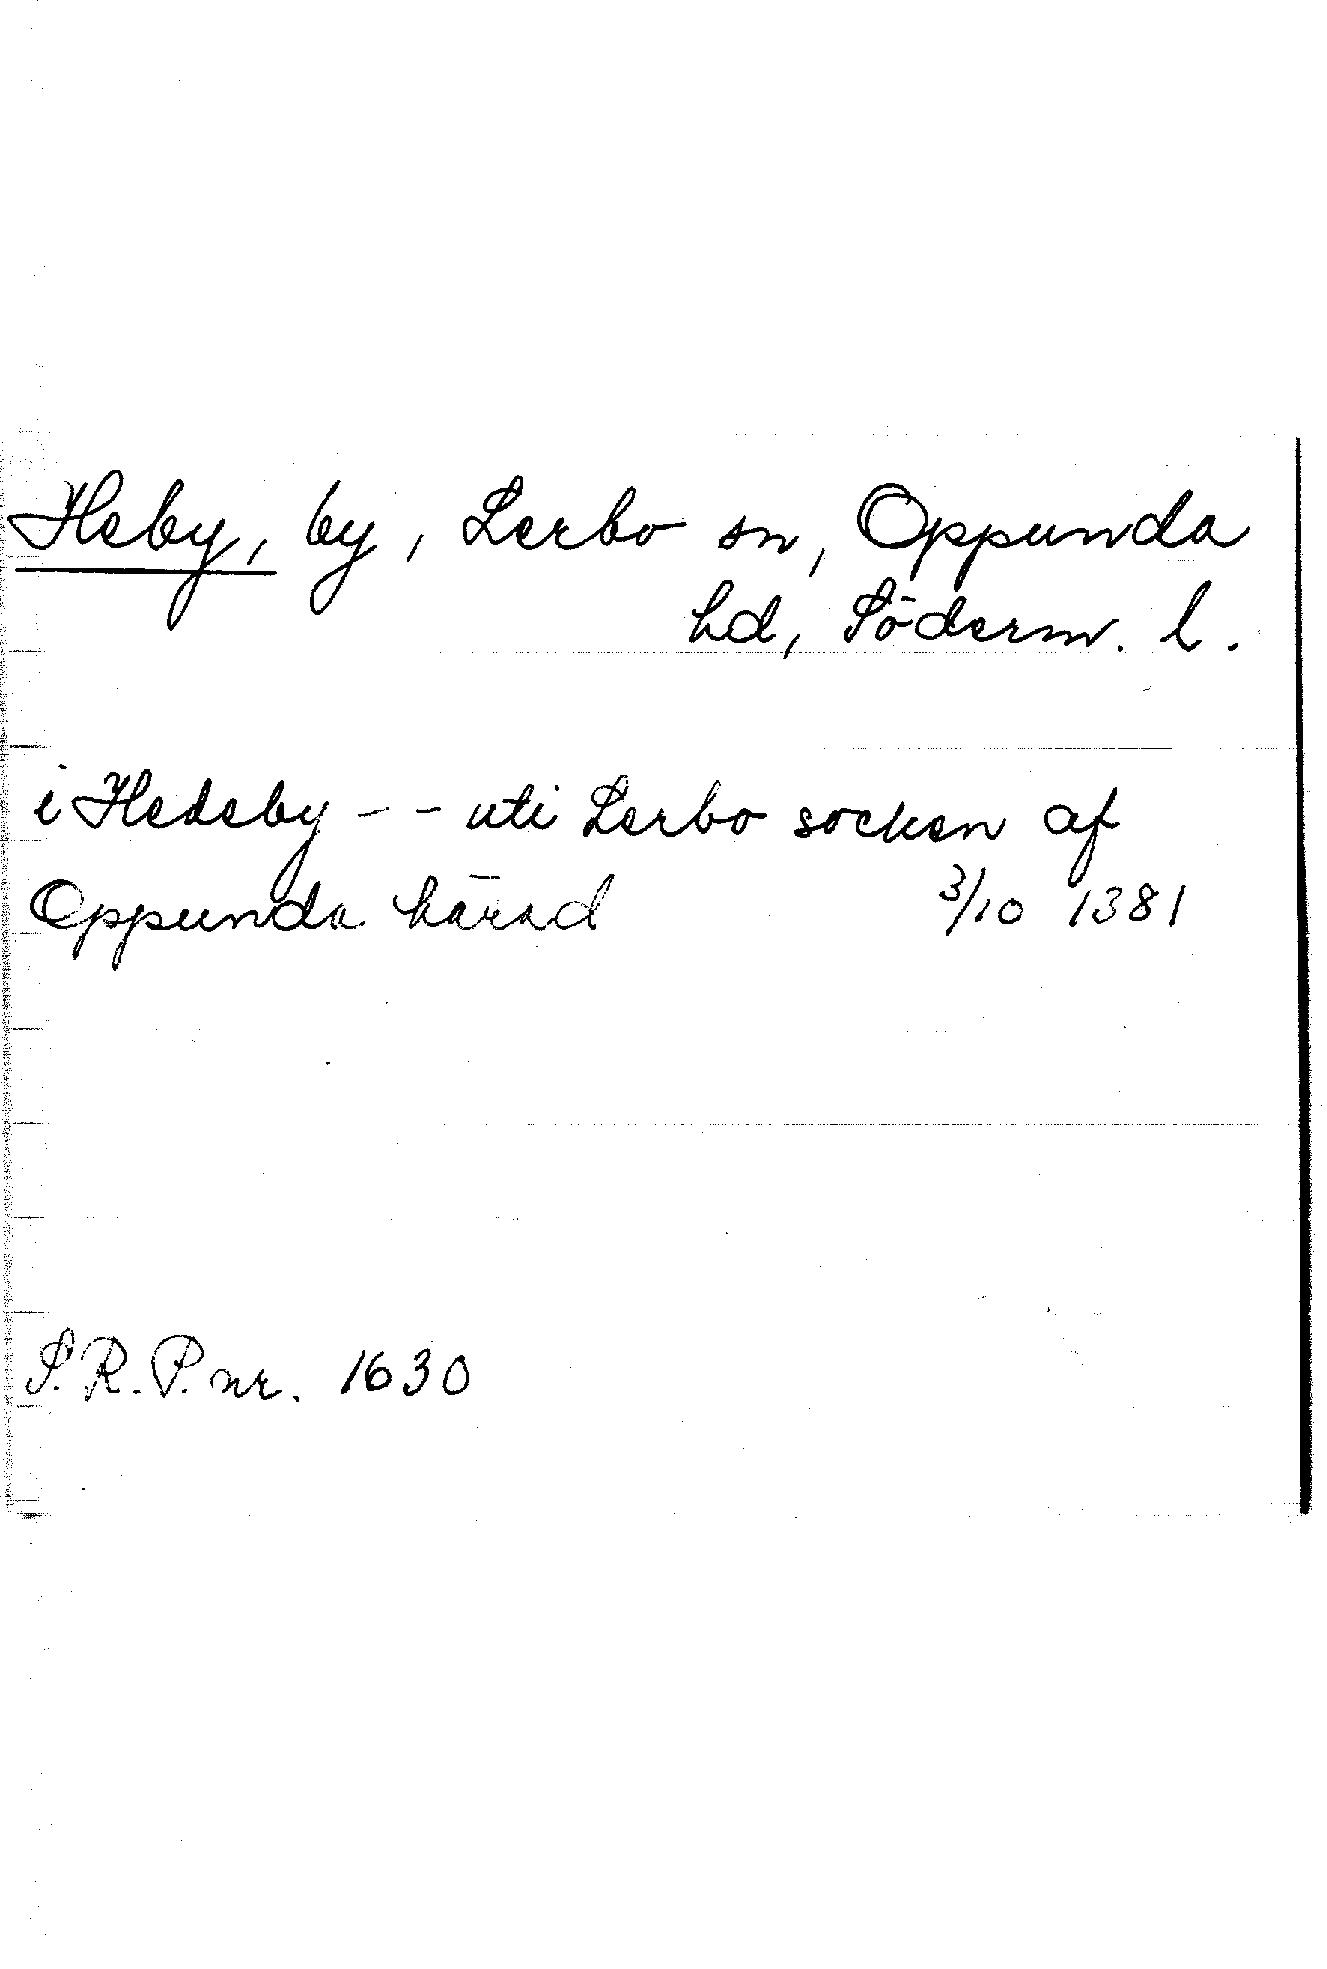 Heby, by, Lerbo sn, Oppunda
hd, Söderm. l.
i Hedeby - - uti Lerbo socken af
Oppunda härad 3/10 1381
S.R.P. nr. 1630